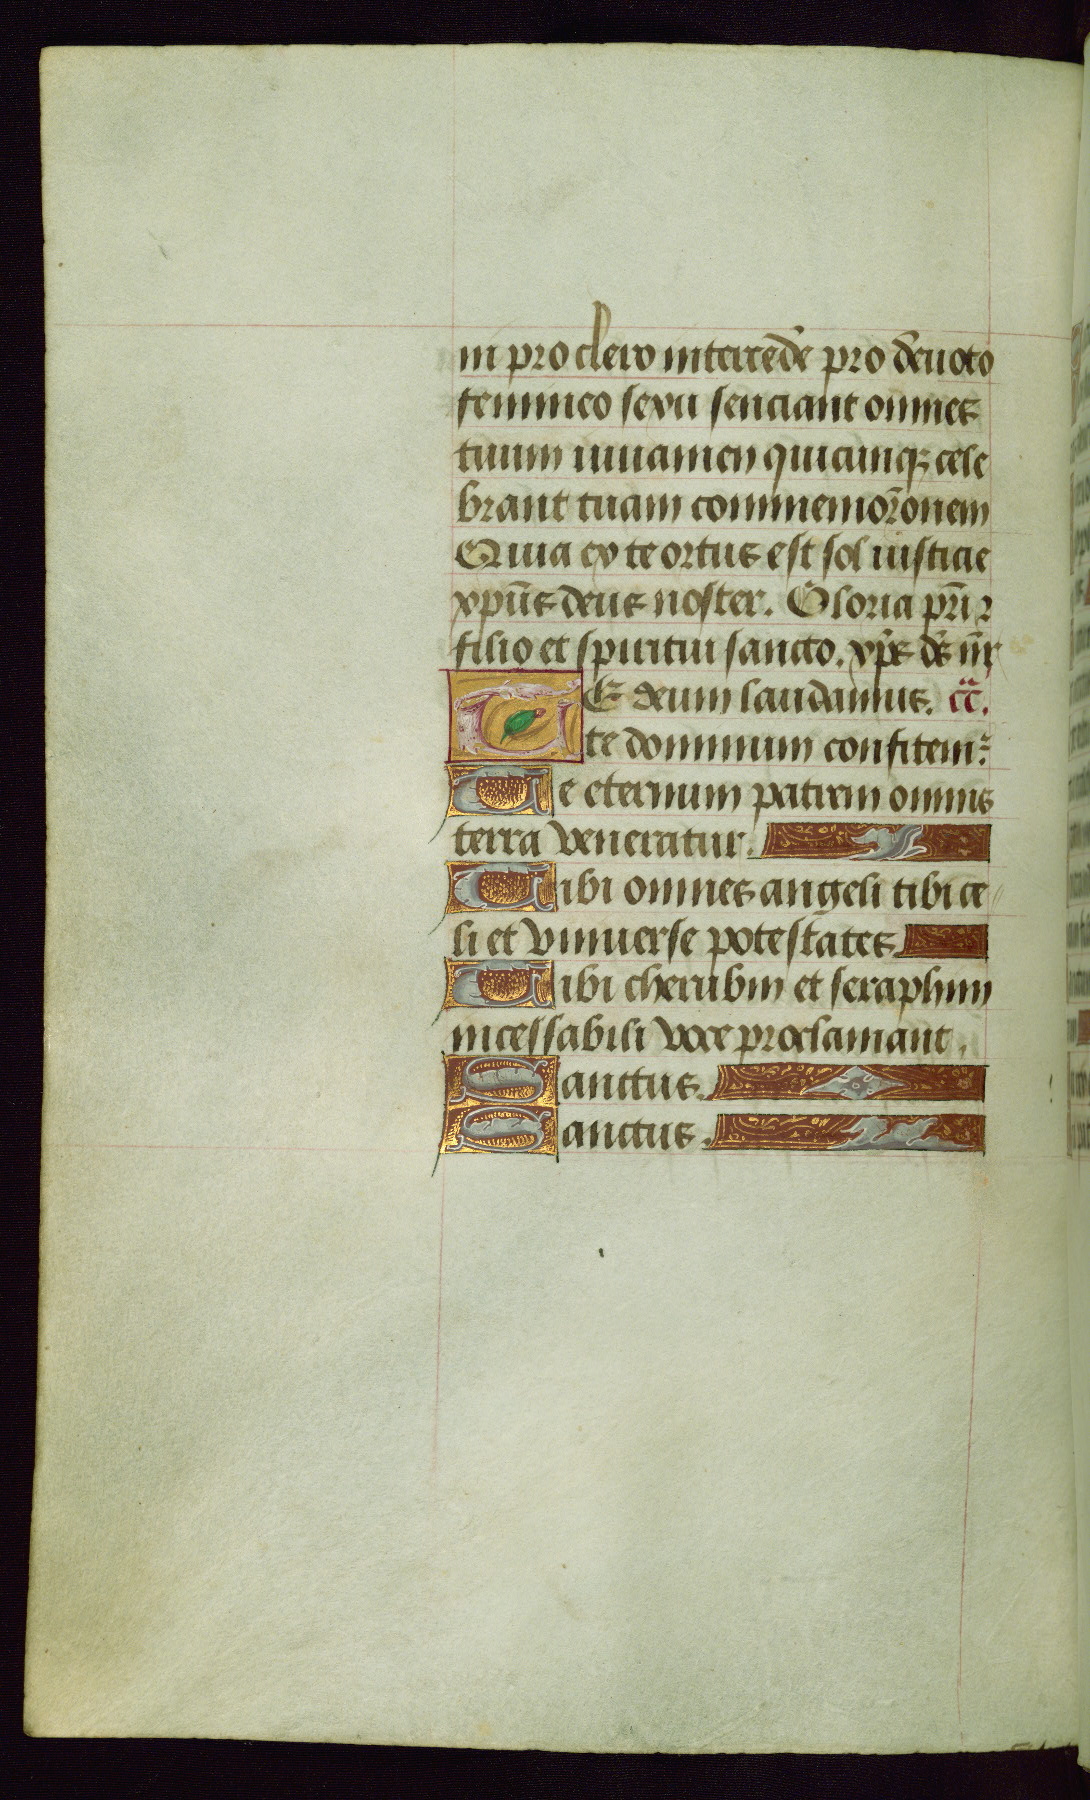 ni pro clero intercede pro deuoto
femineo sexu senciant omnes
tuum iuuamen quicunqȝ cele
brant tuam commemor̄onem
Quia ex te ortus est sol iusticie
xpūs deus noster. Gloria pr̄i ⁊
filio et spiritui sancto. xp̄s ds̄ nr̄
TE deum laudamus.
te dominum confitem᷑
Te eternum patrem omnis
terra veneratur.
Tibi omnes angeli tibi ce
li et vniuerse potestates
Tibi cherubin et seraphim
incessabili voce proclamant.
Sanctus.
Sanctus.